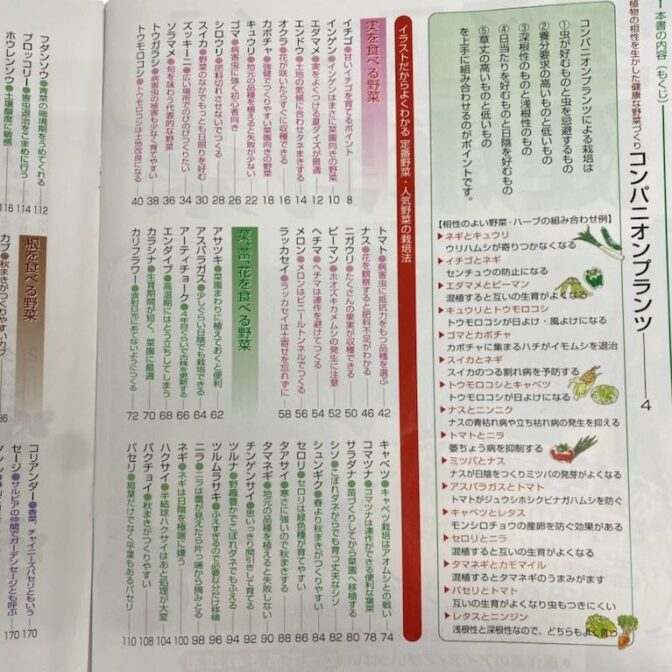 本書の内容（もくじ）
植物の相性を生かした健康な野菜づくり
コンパニオンプランツ 4
コンパニオンプランツによる栽培は
①虫が好むものと虫を忌避するもの
②養分要求の高いものと低いもの
③深根性のものと浅根性のもの
④日当たりを好むものと日陰を好むもの
⑤草丈の高いものと低いもの
を上手に組み合わせるのがポイントです。
【相性のよい野菜・ハーブの組み合わせ例】
▶ネギとキュウリ
ウリハムシが寄りつかなくなる
▶イチゴとネギ
センチュウの防止になる
▶エダマメとピーマン
混植すると互いの生育がよくなる
▶キュウリとトウモロコシ
トウモロコシが日よけ・風よけになる
▶ゴマとカボチャ
カボチャに集まるハチがイモムシを退治
▶スイカとネギ
スイカのつる割れ病を予防する
▶トウモロコシとキャベツ
トウモロコシが日よけになる
▶ナスとニンニク
ナスの青枯れ病や立ち枯れ病の発生を抑える
▶トマトとニラ
萎ちょう病を抑制する
▶ミツバとナス
ナスが日陰をつくりミツバの発芽がよくなる
▶アスパラガスとトマト
トマトがジュウシホシクビナガハムシを防ぐ
▶キャベツとレタス
モンシロチョウの産卵を防ぐ効果がある
▶セロリとニラ
混植すると互いの生育がよくなる
▶タマネギとカモマイル
混植するとタマネギのうまみがます
▶パセリとトマト
互いの生育がよくなり虫もつきにくい
▶レタスとニンジン
浅根性と深根性なので、どちらもよく育つ
イラストだからよくわかる 定番野菜・人気野菜の栽培法
実を食べる野菜
イチゴ●甘いイチゴを育てるポイント 8
インゲン●インゲンはまさに菜園向きの野菜 10
エダマメ●実をよくつける夏ダイズが最適 12
エンドウ●土地の気候に合わせタネまきする 14
オクラ●花が咲いたらすぐに収穫できる 16
カボチャ●強健でつくりやすい菜園向きの野菜 18
キュウリ●地元の品種を植えると失敗が少ない 22
ゴマ●病害虫に強く初心者向き 26
シロウリ●肥料切れさせないでつくる 28
スイカ●野菜のなかでもっとも日照りを好む 30
ズッキーニ●広い場所でのびのびつくりたい 34
ソラマメ●旬を味わう代表的な野菜 36
トウガラシ●病害虫の被害も少なく育てやすい 38
トウモロコシ●トウモロコシは土地改良になる 40
トマト●病害虫に抵抗力をもつ品種を選ぶ 42
ナス●花を観察すると肥料不足がわかる 46
ニガウリ●たくさんの果実が収穫できる 50
ピーマン●ホオズキカメムシの発生に注意 52
ヘチマ●ヘチマは連作を避けてつくる 54
メロン●メロンはビニールトンネルでつくる 56
ラッカセイ●ラッカセイは土寄せを忘れずに 58
葉・茎・花を食べる野菜
アサツキ●菜園まわりに植えておくと便利 62
アスパラガス●少しぐらい日陰でも栽培できる 64
アーティチョーク●4年目ぐらいで古株を更新する 66
エンダイブ●高温期にはとう立ちしてしまう 68
カラシナ●生育期間が短く、菜園に最適 70
カリフラワー●直射日光にあてないようにつくる 72
キャベツ●キャベツ栽培はアオムシとの戦い 74
コマツナ●コマツナは連作ができる便利な葉菜 78
サラダナ●苗づくりしてから菜園へ移植する 80
シソ●こぼれダネからでも育つ丈夫なシソ 82
シュンギク●春より秋まきがつくりやすい 84
セロリ●セロリは緑色種が育てやすい 86
タアサイ●寒さに強いので秋まきする 88
タマネギ●地元の品種を植えると失敗しない 90
チンゲンサイ●思いっきり間引きして育てる 92
ツルナ●野趣豊かでこぼれダネでもふえる 94
ツルムラサキ●ふえすぎるので必要な分だけ移植 96
ニラ●ニラは蕾が見えたら片っ端から摘みとる 98
ネギ●ネギは日陰を極端に嫌う 100
ハクサイ●半結球ハクサイはあと処理が大変 104
パクチョイ●秋まきがつくりやすい 108
パセリ●縮葉だけでなく平葉もあるパセリ 110
フダンソウ●青菜の端境期をうめてくれる 112
ブロッコリー●青虫退治をこまめに行う 114
ホウレンソウ●土壌酸度に敏感 116
根を食べる野菜
カブ●秋まきがつくりやすいカブ
コリアンダー●香菜、チャイニーズパセリともいう 170
セージ●サルビアの仲間でガーデンセージとも呼ぶ 170